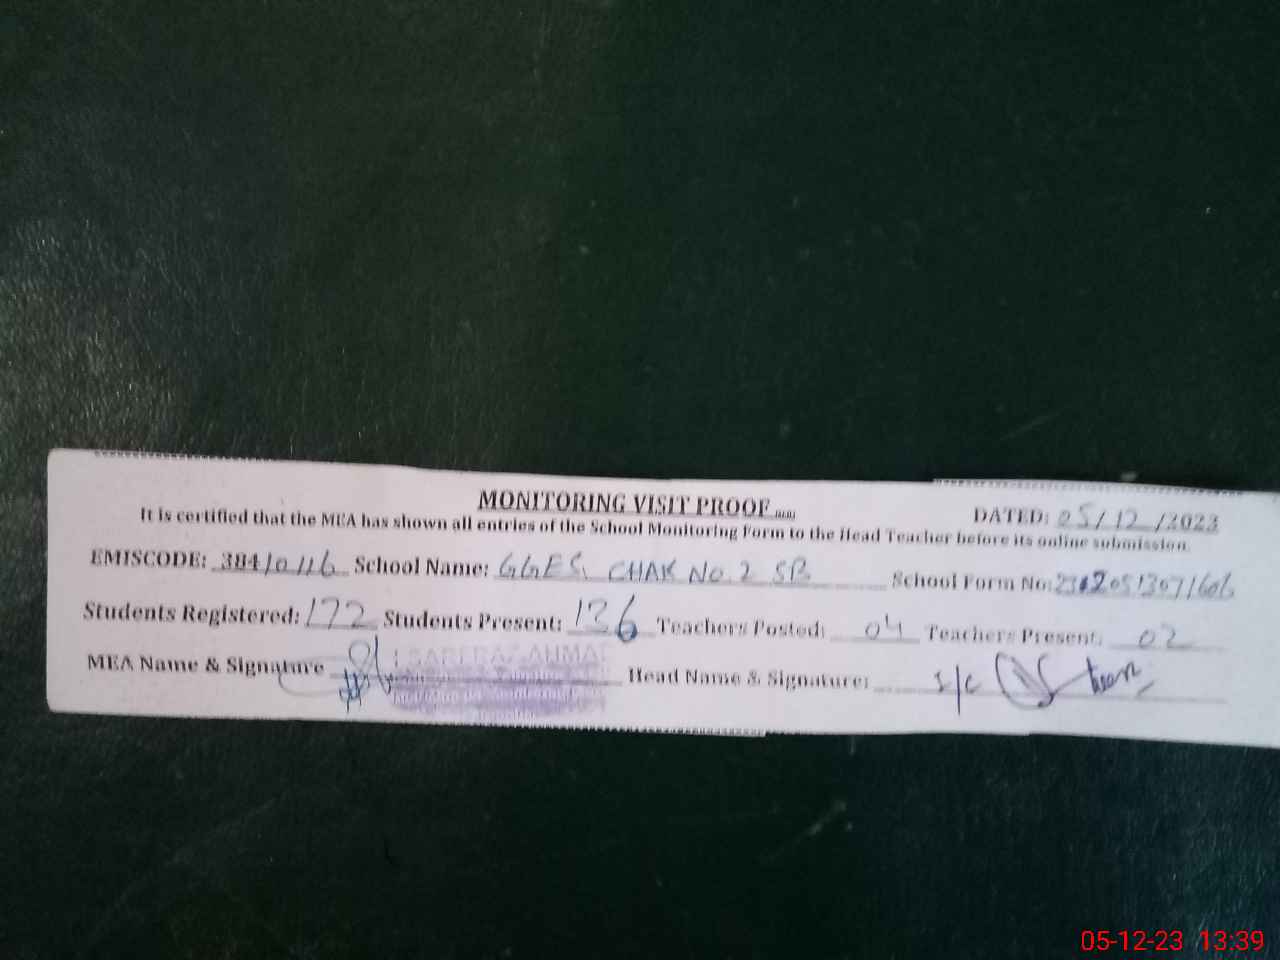 MONITORING VISIT PROOF DATED: 05/12/2023
It is certified that the MEA has shown all entries of the School Monitoring Form to the Head Teacher before its online submission.
EMISCODE: 38410116 School Name: GGES, CHAK No. 2 SB School Form No:
Students Registered: 172 Students Present: 136 Teachers Posted: 04 Teachers Present: 02
MEA Name & Signature SARFRAZ AHMAD Head Name & Signature:
05-12-23 13:39